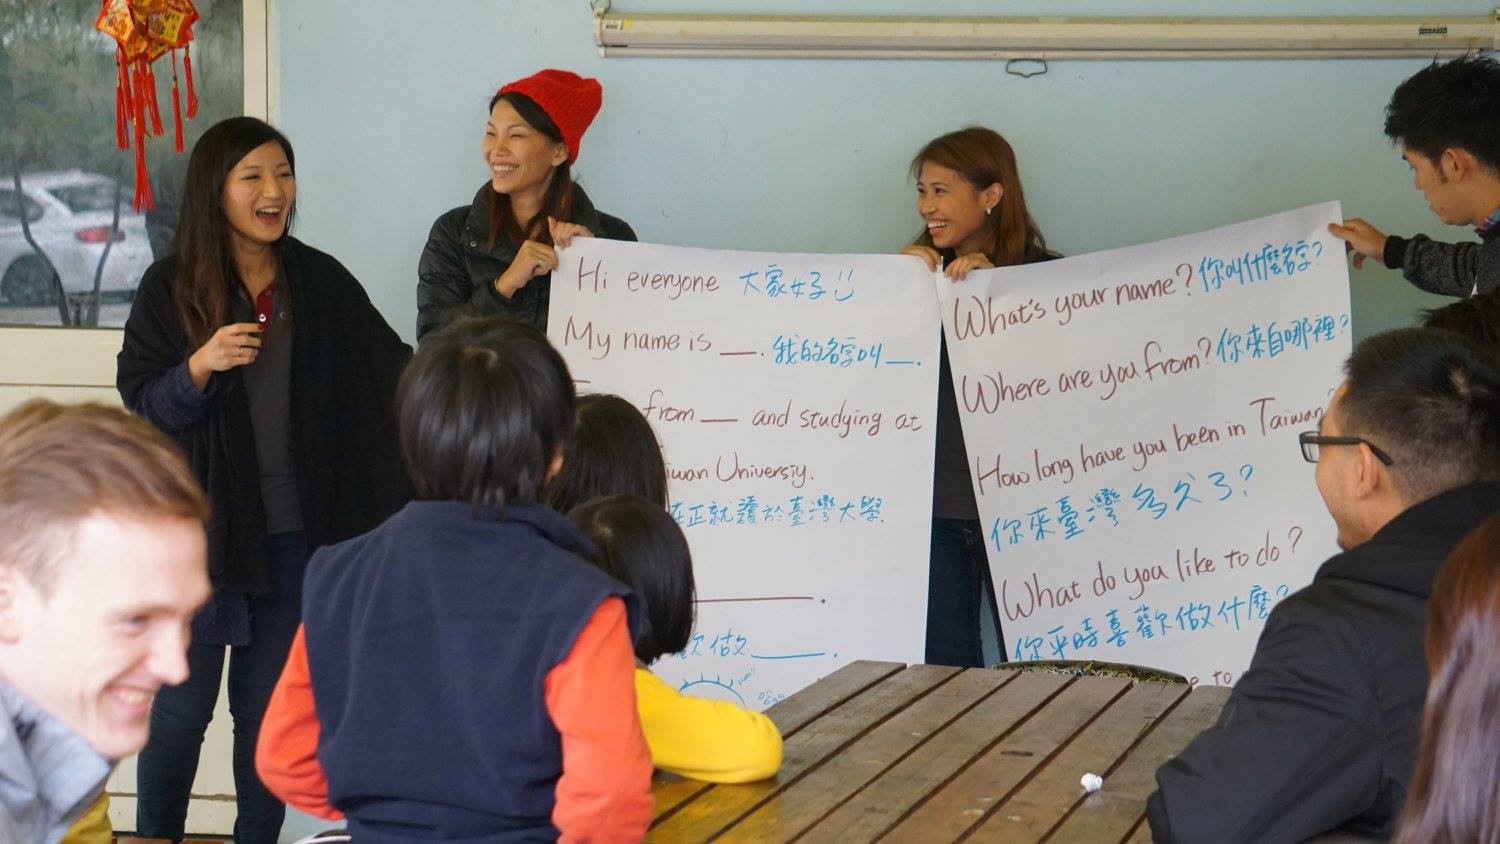 Hi everyone 大家好
My name is ___. 我的名字叫___.
from ___ and studying at
iwan Universiy.
在正就讀於臺灣大學.
___.
歡做___.
What's your name? 你叫什麼名字?
Where are you from? 你來自哪裡?
How long have you been in Taiwan?
你來臺灣多久了?
What do you like to do?
你平時喜歡做什麼?
e to